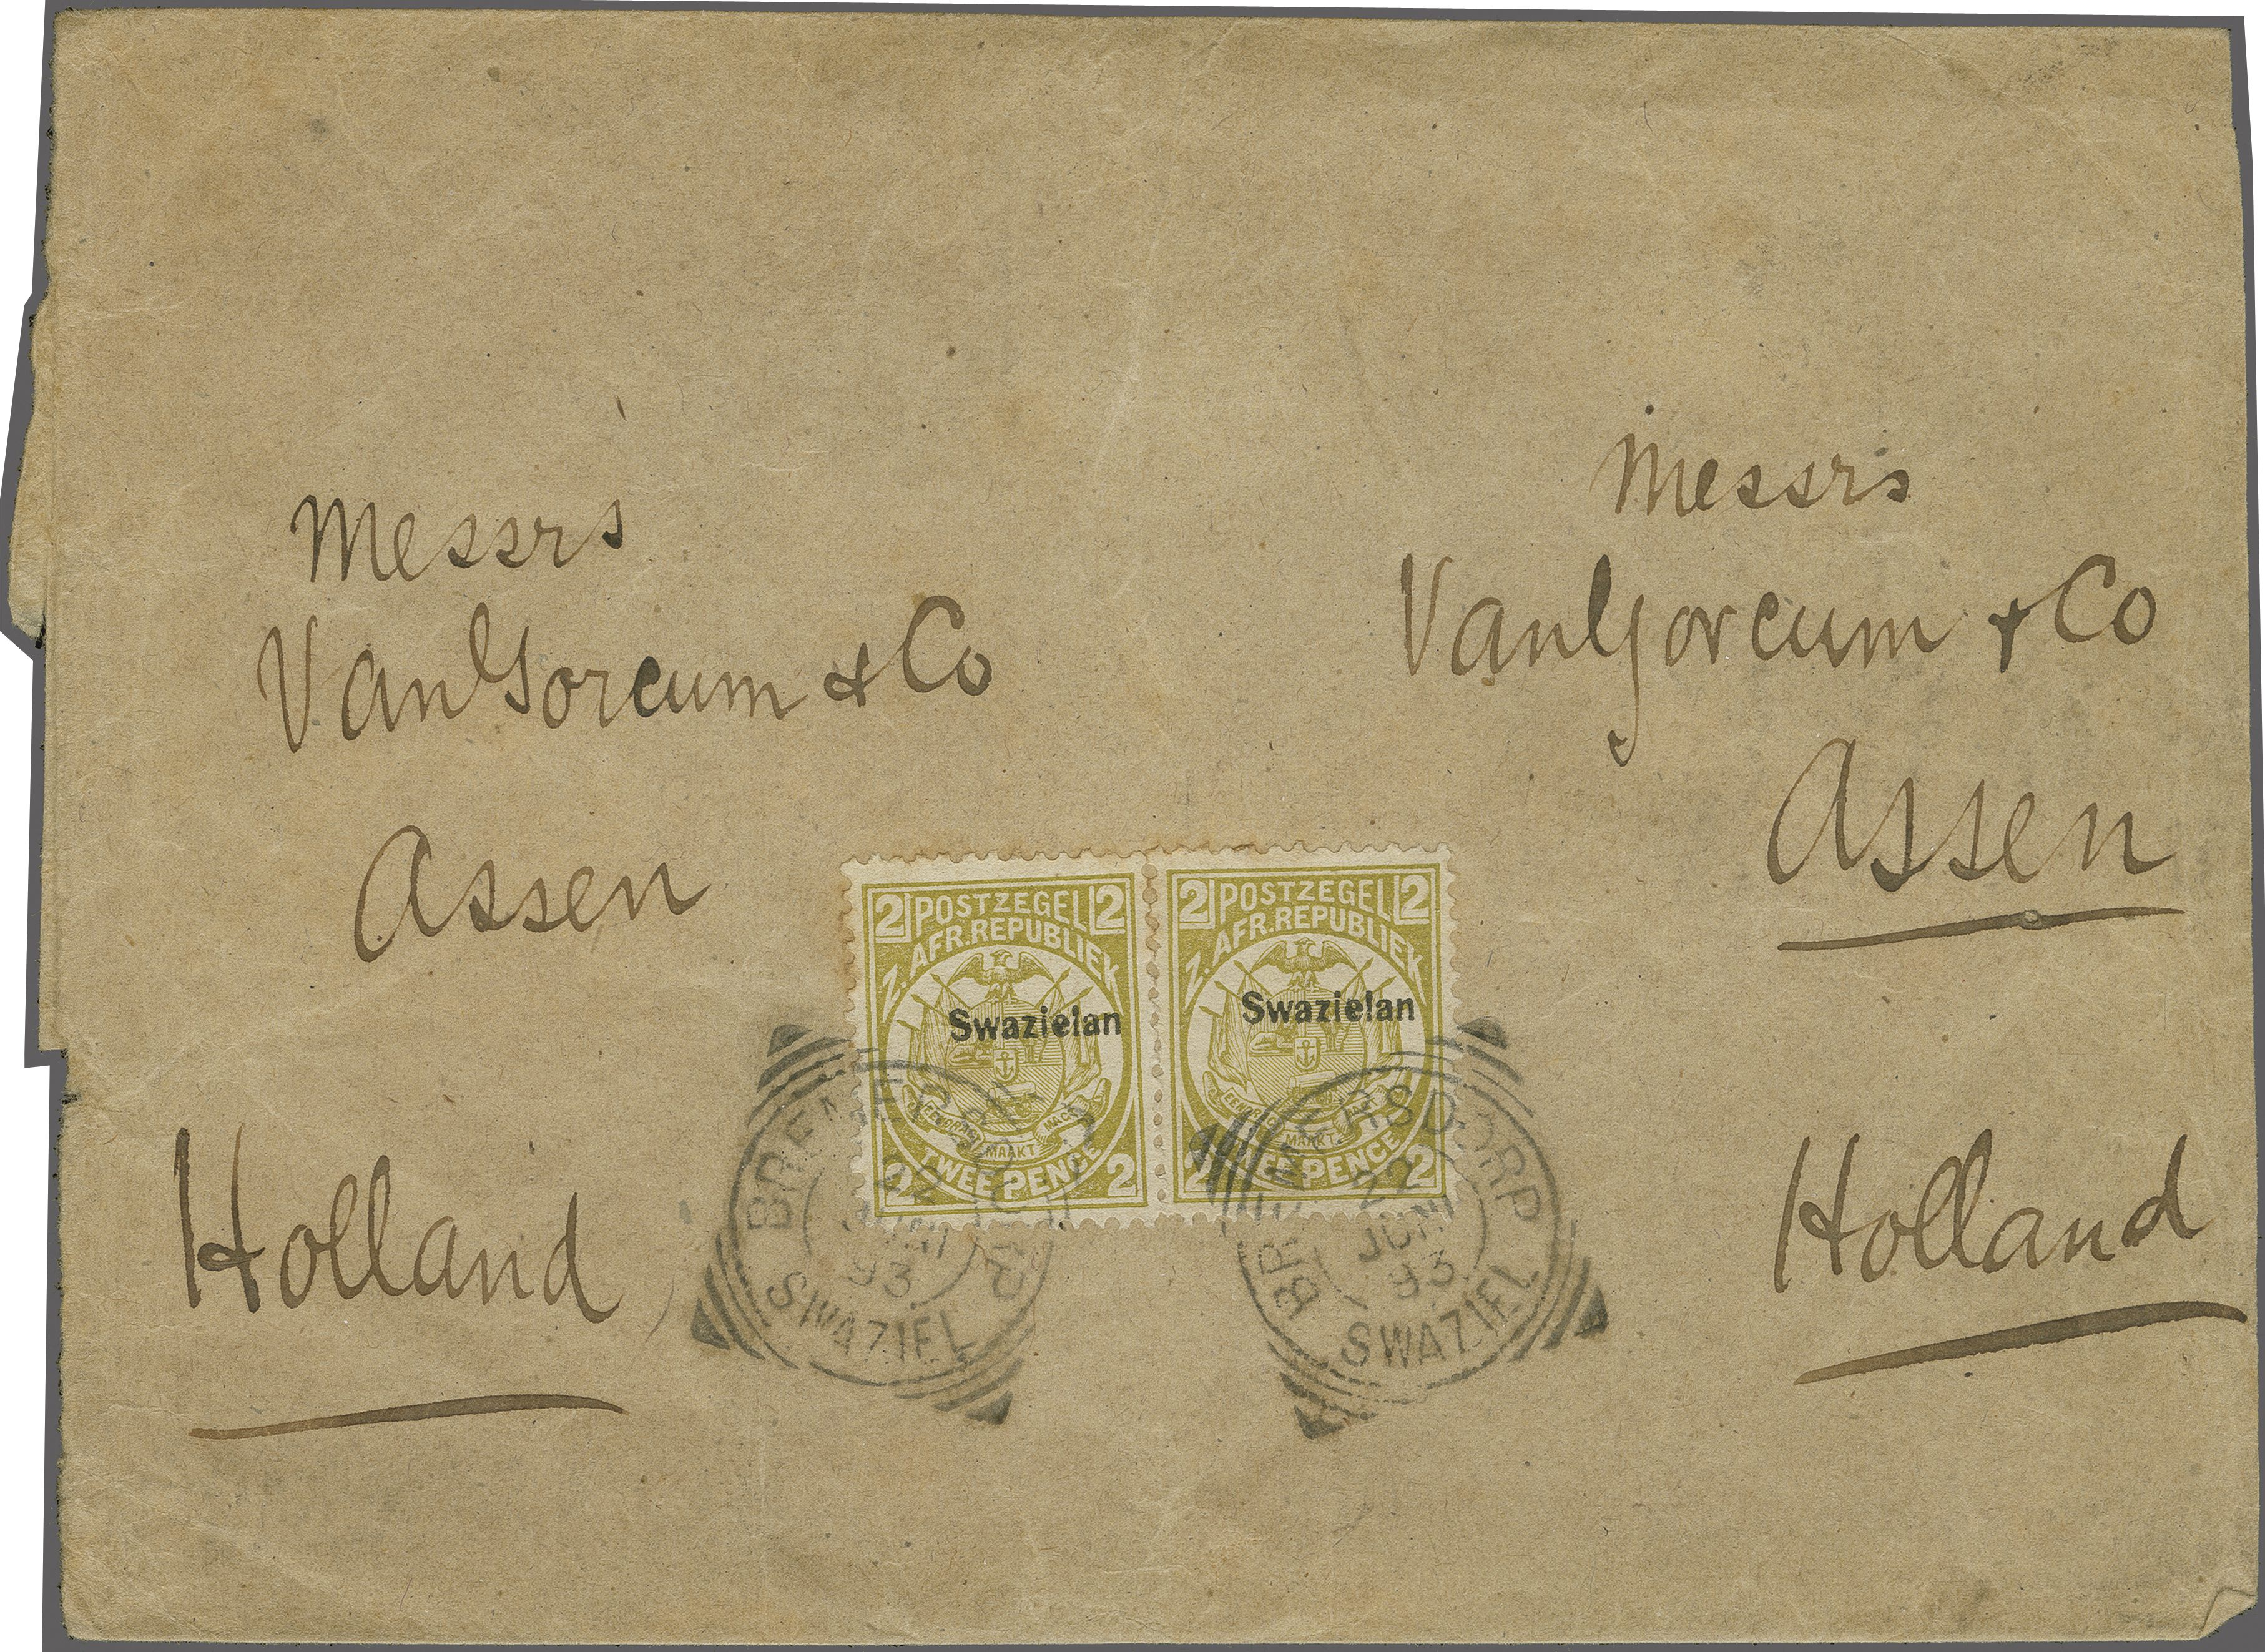 Messrs
Van Gorcum & Co
Assen
Holland
Messrs
Van Gorcum & Co
Assen
Holland
2 POSTZEGEL 2
Z. AFR. REPUBLIEK
Swazielan
EENDRAGT MAAKT MAGT
2 TWEE PENCE 2
2 POSTZEGEL 2
Z. AFR. REPUBLIEK
Swazielan
MAAKT
2 TWEE PENCE 2
BREMERSDORP
22
JUNI
93
SWAZIEL
BREMERSDORP
22
JUNI
93
SWAZIEL